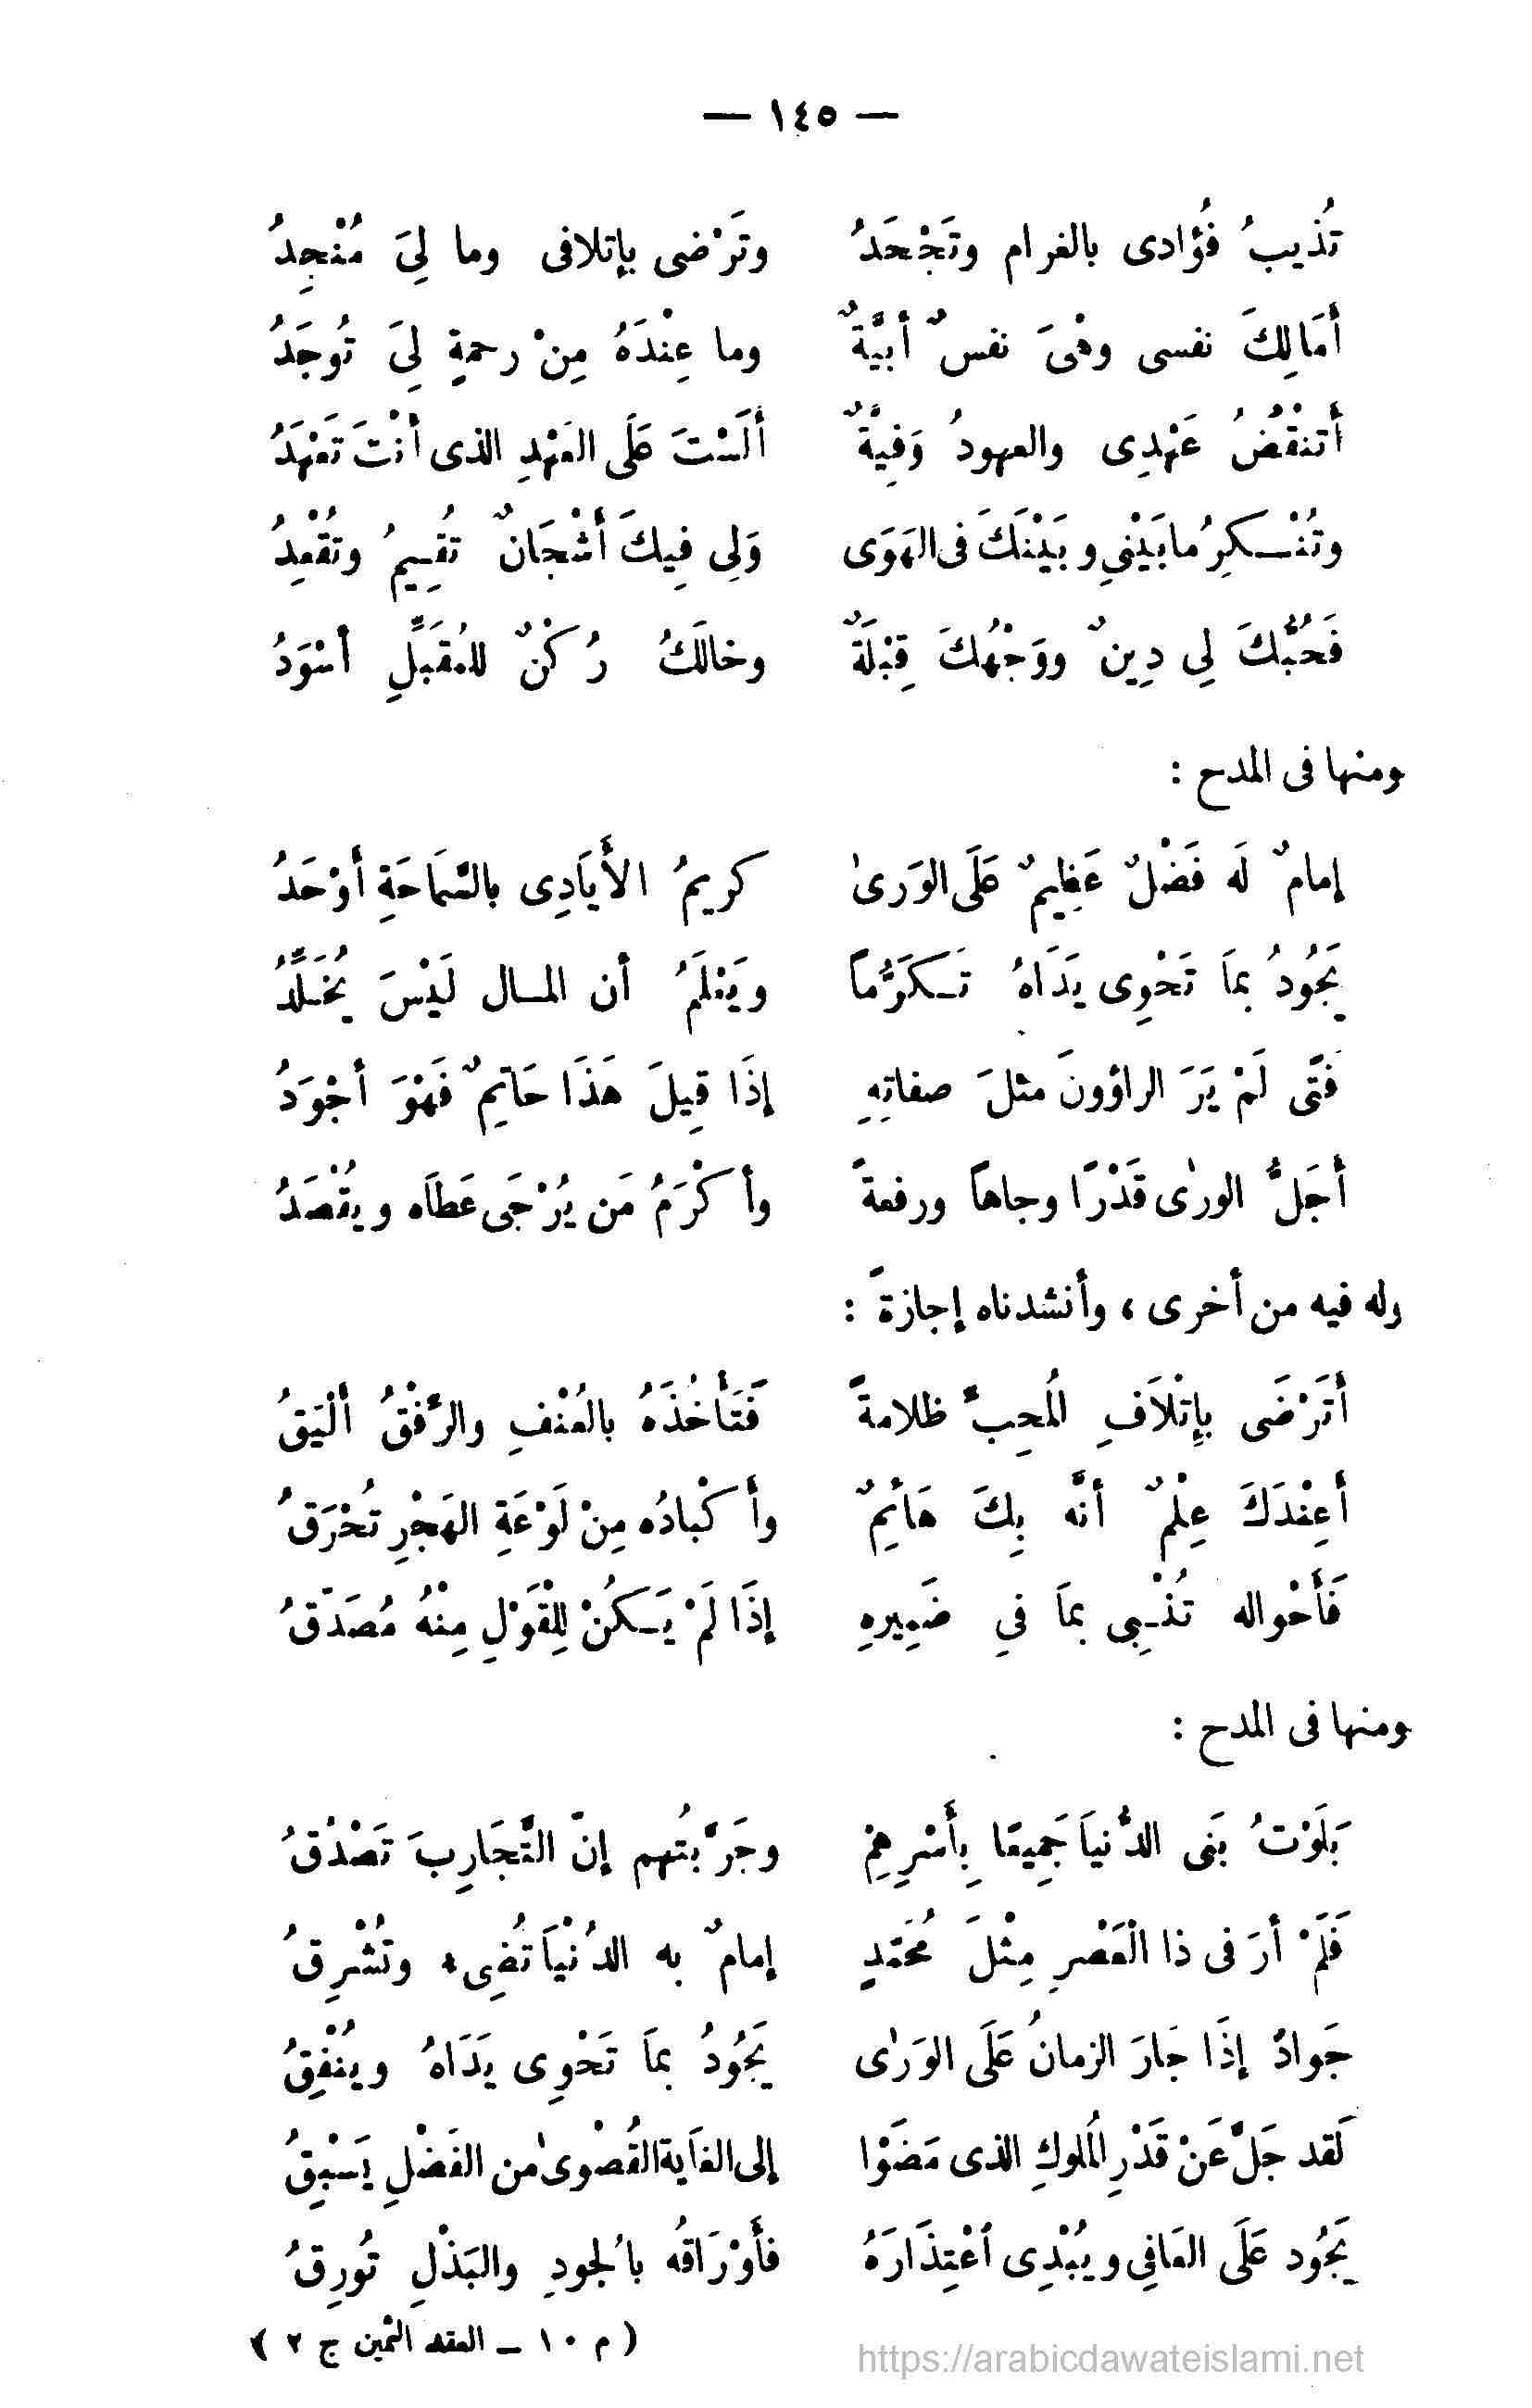 — ١٤٥ —
تُذيبُ فُؤادى بالغرام وتَجْحَدُ وتَرْضى بإتلافى وما لِىَ مُنْجِدُ
أمَالِكَ نفسى وهْىَ نفسٌ أبيَّةٌ وما عِنْدَهُ مِنْ رحمةٍ لِىَ تُوجَدُ
أتنقْضُ عَهْدِى والعهودُ وَفِيَّةٌ ألَسْتَ عَلَى العَهْدِ الذى أنْتَ تَعْهَدُ
وتُنْكِرُ مابَيْنِي وبَيْنَكَ فى الهَوَى وَلِى فِيكَ أَشْجَانٌ تُقِيمُ وتُقْعِدُ
فَحُبُّكَ لِى دِينٌ ووَجْهُكَ قِبْلَةٌ وخالَكُ رُكْنٌ للمُقَبِّلِ أسْوَدُ
ومنها فى المدح :
إمامٌ لَه فَضْلٌ عَظِيمٌ عَلَى الوَرىٰ كريمُ الأَيَادِى بالسَّمَاحَةِ أوْحَدُ
يَجُودُ بمَا تَحْوِى يَدَاهُ تَكَرُّماً ويَعْلَمُ أن المال لَيْسَ يُخَلَّدُ
فَتًى لَمْ يَرَ الراؤونَ مثلَ صفاتِهِ إذَا قِيلَ هَذَا حَاتِمٌ فَهْوَ أجْوَدُ
أجَلُّ الورٰى قَدْرًا وجاهاً ورفعةً وأكْرَمُ مَن يُرْجَى عَطَاه ويقْصَدُ
وله فيه من أخرى ، وأنشدناه إجازةً :
أتَرْضَى بإِتْلاَفِ المُحِبِّ ظلامةً فَتَأْخُذَهُ بالعُنْفِ والرِّفْقُ ألْيَقُ
أعِنْدَكَ عِلْمٌ أنَّه بِكَ هَائمٌ وأكْبادُه مِنْ لَوْعَةِ الهَجْرِ تُحْرَقُ
فَأَحْواله تُنْبِى بمَا فِي ضَمِيرِهِ إذَا لَمْ يَكُنْ لِلْقَوْلِ مِنْهُ مُصَدّقُ
ومنها فى المدح :
بَلَوْتُ بَنى الدُّنيَا جَمِيعًا بِأَسْرِهِمْ وجَرَّبتُهم إنّ التَّجَارِبَ تَصْدُقُ
فَلَمْ أرَ فى ذا الْعَصْرِ مِثْلَ مُحَمّدٍ إمامٌ به الدُنْيَا تُضِىء وتُشْرِقُ
جَوادٌ إذَا جَارَ الزمانُ عَلَى الوَرٰى يَجُودُ بمَا تَحْوِى يَدَاهُ وينُفْقِقُ
لَقد جَلَّ عَنْ قَدْرِ المُلوكِ الذى مَضَوْا إلى الغَاية القُصْوىٰ من الفَضْلِ يَسْبِقُ
يَجُود عَلَى العَافِى ويُبْدِى اعْتِذَارَهُ فأَوْرَاقُه بالجُودِ والبَذْلِ تُورِقُ
( م ١٠ – العقد الثمين ج ٢ )
https://arabicdawateislami.net